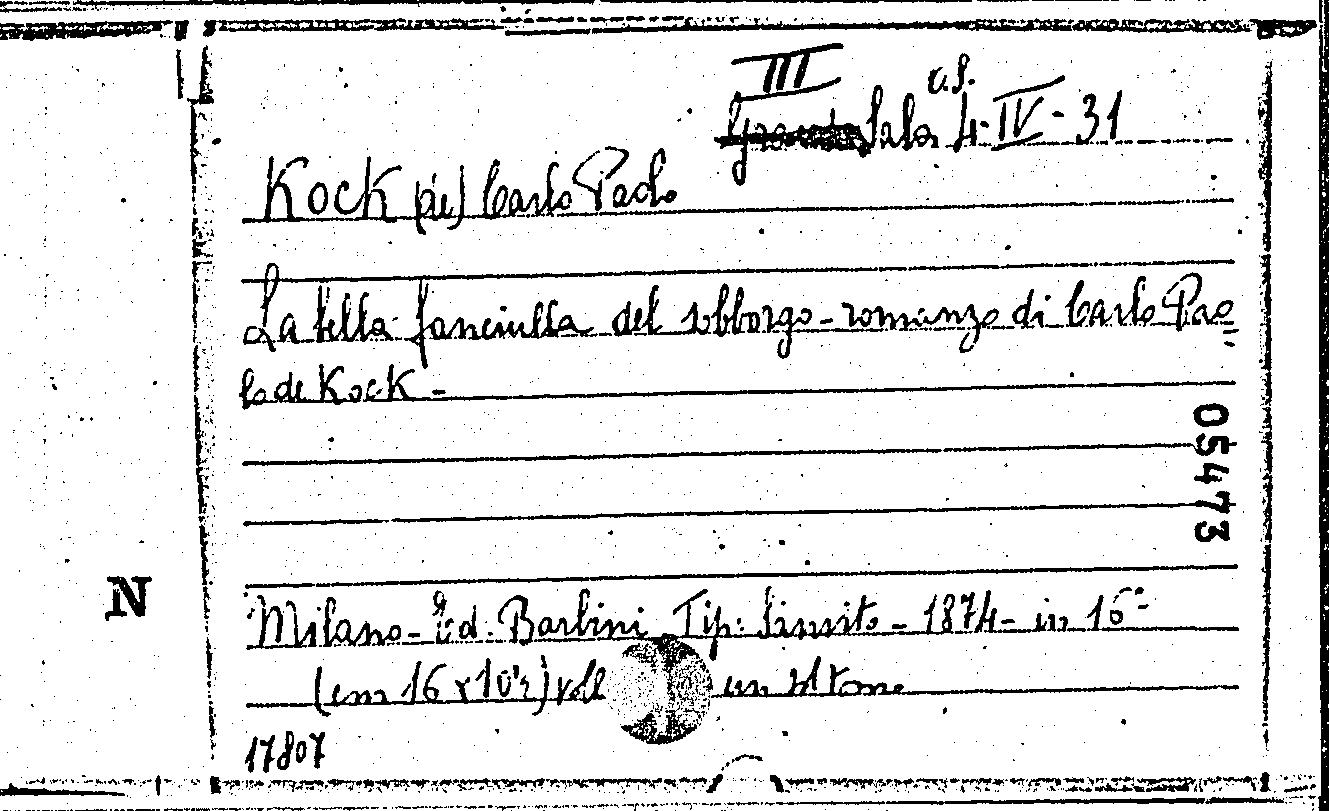 III
v.s.
Grande Sala 4-IV-31
Kock (de) Carlo Paolo
La bella fanciulla del sobborgo - romanzo di Carlo Pao=
lo de Kock -
05473
N
Milano - Ed. Barbini Tip: - 1874 - in 16°-
(cm 16 x 10½) voll un sol tomo
17807